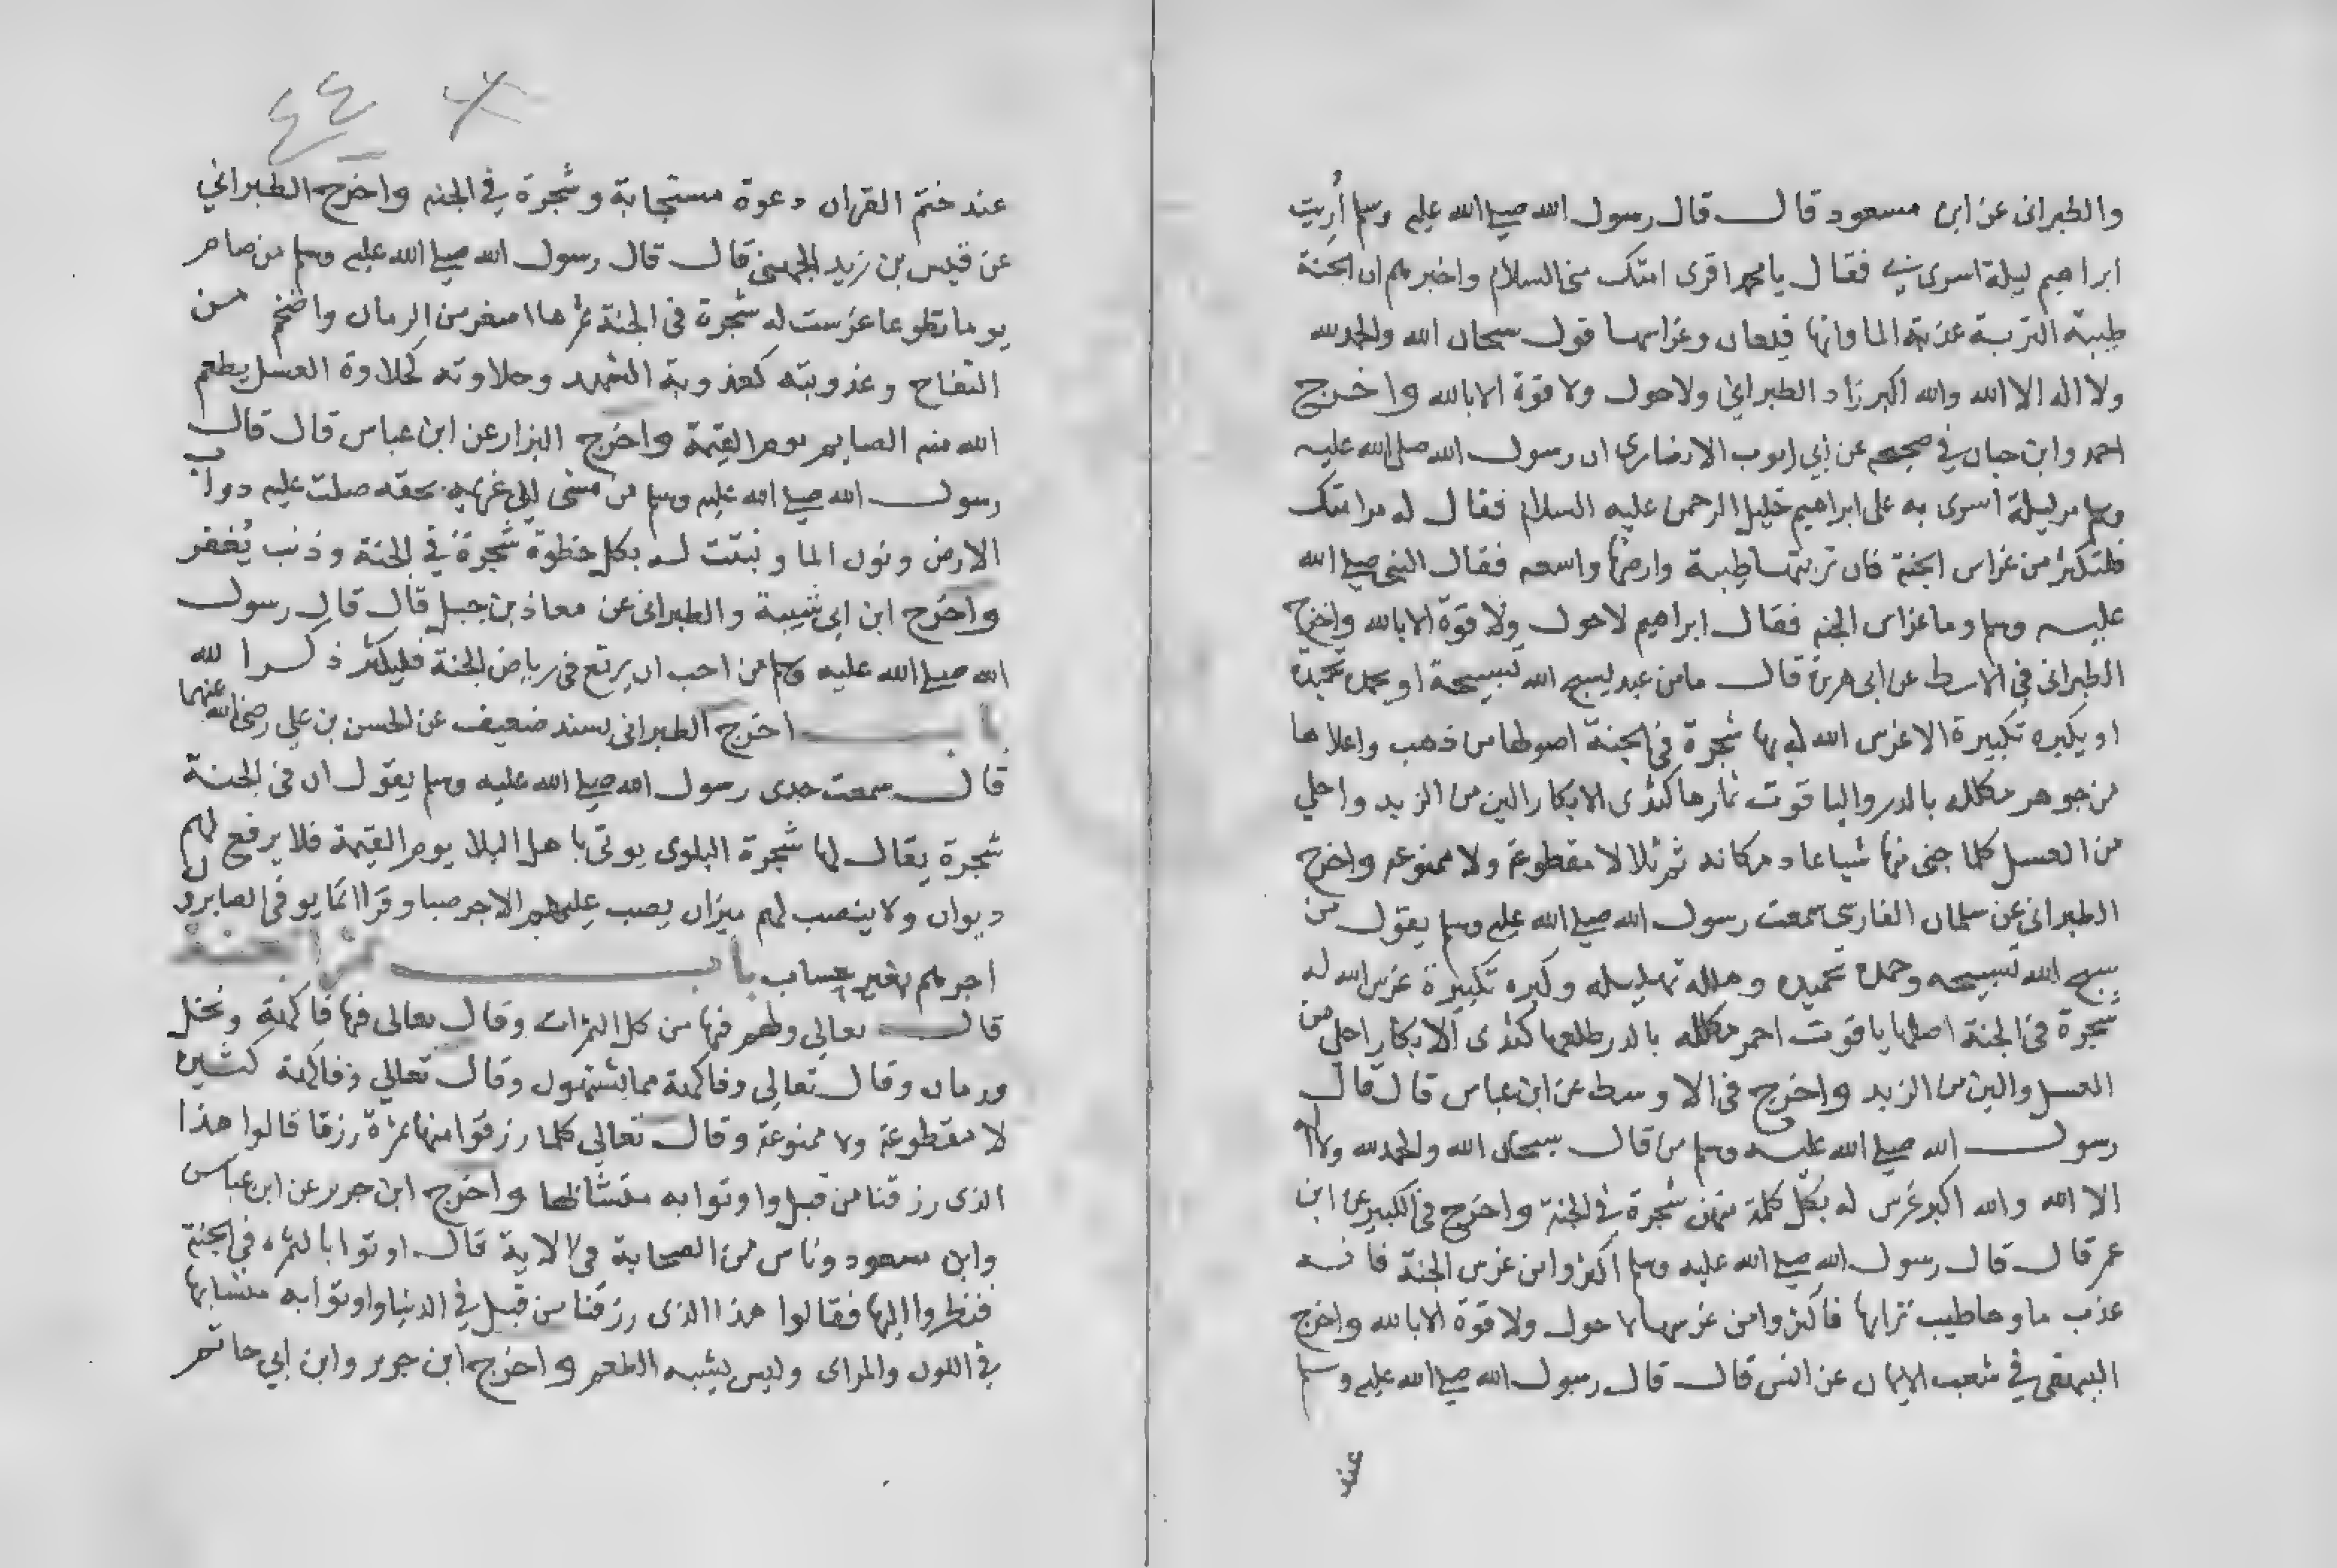 والطبرانى عن ابن مسعود قال قال رسول الله صلى الله عليه وسلم أُريت
ابراهيم ليلة اسرى بي فقال يا محمد اقرى امتك منى السلام واخبرهم ان الجنة
طيبة التربة عذبة الما وانها قيعان وغراسها قول سبحان الله والحمد لله
ولا اله الا الله والله اكبر زاد الطبراني ولا حول ولا قوة الا بالله واخرج
احمد وابن حبان في صحيحه عن ابي ايوب الانصاري ان رسول الله صلى الله عليه
وسلم مر ليلة اسرى به على ابراهيم خليل الرحمن عليه السلام فقال له مر امتك
فلتكثر من غراس الجنة فان تربتها طيبة وارضها واسعه فقال النبى صلى الله
عليه وسلم وما غراس الجنه فقال ابراهيم لا حول ولا قوة الا بالله واخرج
الطبرانى فى الاسط عن ابى هريرة قال ما من عبد يسبح الله تسبيحة او يحمده تحميدة
او يكبره تكبيرة الا غرس الله له بها شجرة فى الجنة اصولها من ذهب واعلاها
من جوهر مكلله بالدر والياقوت ثمارها كثدى الابكار الين من الزبد واحلي
من العسل كلما جنى منها شيا عاد مكانه ثم تلا لا مقطوعة ولا ممنوعه واخرج
الطبرانى عن سلمان الفارسى سمعت رسول الله صلى الله عليه وسلم يقول من
سبح الله تسبيحه وحمده تحميده وهلله تهليله وكبره تكبيرة غرس الله له
شجرة فى الجنة اصلها ياقوت احمر مكلله بالدر طلعها كثدى الابكار احلى من
العسل والين من الزبد واخرج فى الاوسط عن ابن عباس قال قال
رسول الله صلى الله عليه وسلم من قال سبحان الله والحمد لله ولا اله
الا الله والله اكبر غرس له بكل كلمة منهن شجرة في الجنة واخرج فى الكبير عن ابن
عمر قال قال رسول الله صلى الله عليه وسلم اكثروا من غرس الجنة فانه
عذب ماوها طيب ترابها فاكثروا من غرسها لا حول ولا قوة الا بالله واخرج
البيهقى في شعب الايمان عن انس قال قال رسول الله صلى الله عليه وسلم
عند
٤٤
عند ختم القران دعوة مستجابة وشجرة في الجنه واخرج الطبراني
عن قيس بن زيد الجهني قال قال رسول الله صلى الله عليه وسلم من صام
يوما تطوعا غرست له شجرة فى الجنة ثمرها اصغر من الرمان واضخم من
التفاح وعذوبته كعذوبة الشهد وحلاوته كحلاوة العسل يطعم
الله منه الصايم يوم القيمة واخرج البزار عن ابن عباس قال قال
رسول الله صلى الله عليه وسلم من مشى الي غريمه بحقه صلت عليه دواب
الارض ونون الما ونبتت له بكل خطوة شجرة في الجنة وذنب يُغفر
واخرج ابن ابى شيبة والطبرانى عن معاذ بن جبل قال قال رسول
الله صلى الله عليه وسلم من احب ان يرتع فى رياض الجنة فليكثر ذكرا لله
باب اخرج الطبرانى بسند ضعيف عن الحسن بن على رضى الله عنهما
قال سمعت جدى رسول الله صلى الله عليه وسلم يقول ان فى الجنة
شجرة يقال لها شجرة البلوى يوتى باهل البلا يوم القيمة فلا يرفع لهم
ديوان ولا ينصب لهم ميزان يصب عليهم الاجر صبا وقرا انما يوفى الصابرون
اجرهم بغير حساب باب ثمر الجنة
قال تعالى ولهم فيها من كل الثمرات وقال تعالى فيها فاكهة ونخل
ورمان وقال تعالى وفاكهة مما يشتهون وقال تعالي وفاكهة كثيرة
لا مقطوعة ولا ممنوعة وقال تعالي كلما رزقوا منها من ثمرة رزقا قالوا هذا
الذى رزقنا من قبل واوتوا به متشابها واخرج ابن جرير عن ابن عباس
وابن مسعود وناس من الصحابة فى الاية قال اوتوا بالثمره فى الجنة
فنظروا اليها فقالوا هذا الذى رزقنا من قبل في الدنيا واوتوا به متشابها
في اللون والمراى وليس يشبه الطعم واخرج ابن جرير وابن ابي حاتم